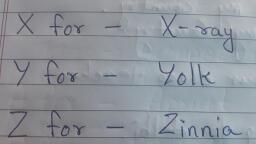 X for - X-ray
Y for - Yolk
Z for - Zinnia